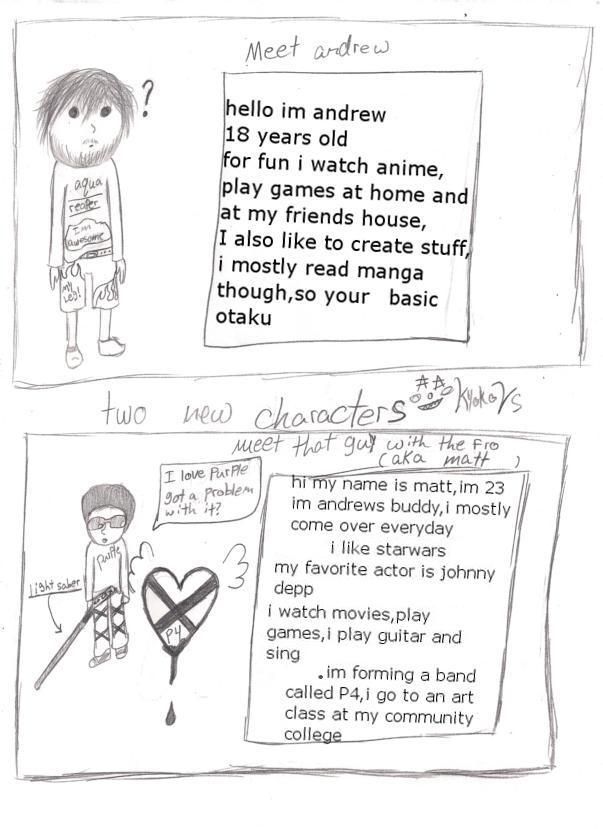 Meet andrew
?
hello im andrew
18 years old
for fun i watch anime,
play games at home and
at my friends house,
I also like to create stuff,
i mostly read manga
though,so your basic
otaku
aqua
reaper
I'm
awesome
my
leg!
two new characters
meet that guy with the fro
(aka matt )
I love PurPle
got a problem
with it?
hi my name is matt,im 23
im andrews buddy,i mostly
come over everyday
i like starwars
my favorite actor is johnny
depp
i watch movies,play
games,i play guitar and
sing
.im forming a band
called P4,i go to an art
class at my community
college
PurPle
light saber
P4